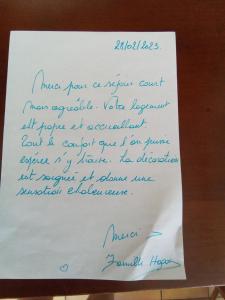 28/02/2023.
Merci pour ce séjour court
mais agréable. Votre logement
est propre et accueillant.
Tout le confort que l'on puisse
espérer s'y trouve. La décoration
est soignée et donne une
sensation chaleureuse.
Merci
Famille